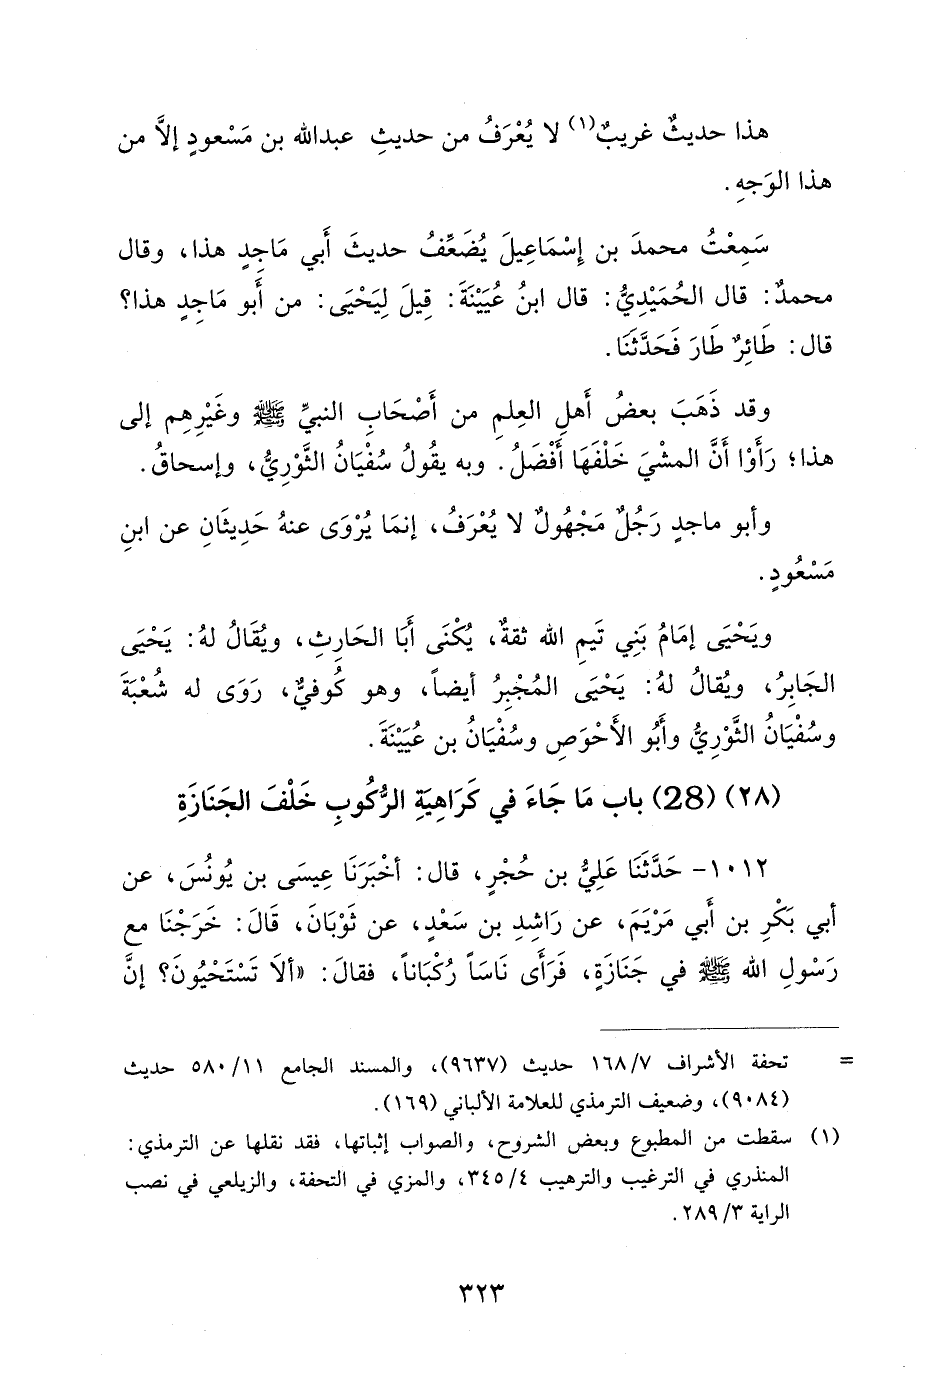 هذا حديثٌ غريبٌ(١) لا يُعْرَفُ من حديثِ عبدالله بن مَسْعودٍ إلاَّ من
هذا الوَجهِ.
سَمِعْتُ محمدَ بن إسْمَاعِيلَ يُضَعِّفُ حديثَ أبي مَاجِدٍ هذا، وقال
محمدٌ: قال الحُمَيْدِيُّ: قال ابنُ عُيَيْنَةَ: قِيلَ لِيَحْيَى: من أَبو مَاجِدٍ هذا؟
قال: طَائِرٌ طَارَ فَحَدَّثَنَا.
وقد ذَهَبَ بعضُ أَهلِ العِلمِ من أَصْحَابِ النبيِّ ﷺ وغَيْرِهِم إلى
هذا؛ رَأَوْا أَنَّ المشْيَ خَلْفَهَا أَفْضَلُ. وبه يقُولُ سُفْيَانُ الثَّوْرِيُّ، وإسحاقُ.
وأبو ماجدٍ رَجُلٌ مَجْهُولٌ لا يُعْرَفُ، إنمَا يُرْوَى عنهُ حَدِيثَانِ عن ابنِ
مَسْعُودٍ.
ويَحْيَى إمَامُ بَنِي تَيمِ الله ثقةٌ، يُكْنَى أَبَا الحَارِثِ، ويُقَالُ لهُ: يَحْيَى
الجَابِرُ، ويُقالُ لهُ: يَحْيَى المُجْبِرُ أيضاً، وهو كُوفيٌّ، رَوَى له شُعْبَةَ
وسُفْيَانُ الثَّوْرِيُّ وأَبُو الأَحْوَصِ وسُفْيَانُ بن عُيَيْنَةَ.
(٢٨) (28) باب مَا جَاءَ في كَرَاهِيَةِ الرُّكُوبِ خَلْفَ الجَنَازَةِ
١٠١٢- حَدَّثَنَا عَلِيُّ بن حُجْرٍ، قال: أخْبَرَنَا عِيسَى بن يُونُسَ، عن
أبي بَكْرِ بن أَبي مَرْيَمَ، عن رَاشِدِ بن سَعْدٍ، عن ثَوْبَانَ، قَالَ: خَرَجْنَا مع
رَسْولِ الله ﷺ في جَنَازَةٍ، فَرَأَى نَاسَاً رُكْبَاناً، فقالَ: «ألاَ تَسْتَحْيُونَ؟ إنَّ
= تحفة الأشراف ١٦٨/٧ حديث (٩٦٣٧)، والمسند الجامع ٥٨٠/١١ حديث
(٩٠٨٤)، وضعيف الترمذي للعلامة الألباني (١٦٩).
(١) سقطت من المطبوع وبعض الشروح، والصواب إثباتها، فقد نقلها عن الترمذي:
المنذري في الترغيب والترهيب ٣٤٥/٤، والمزي في التحفة، والزيلعي في نصب
الراية ٢٨٩/٣.
٣٢٣